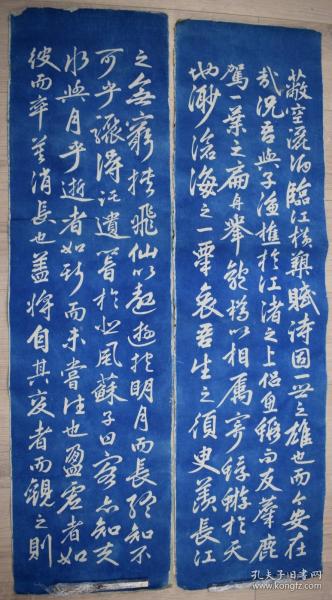 蔽空灑酒臨江橫槊賦詩固一世之雄也而今安在
哉況吾與子漁樵於江渚之上侶魚鰕而友麋鹿
駕一葉之扁舟舉匏樽以相屬寄蜉蝣於天
地渺滄海之一粟哀吾生之須臾羨長江
之無窮挾飛仙以遨遊抱明月而長終知不
可乎驟得託遺響於悲風蘇子曰客亦知夫
水與月乎逝者如斯而未嘗往也盈虛者如
彼而卒莫消長也蓋將自其變者而觀之則
孔夫子旧书网